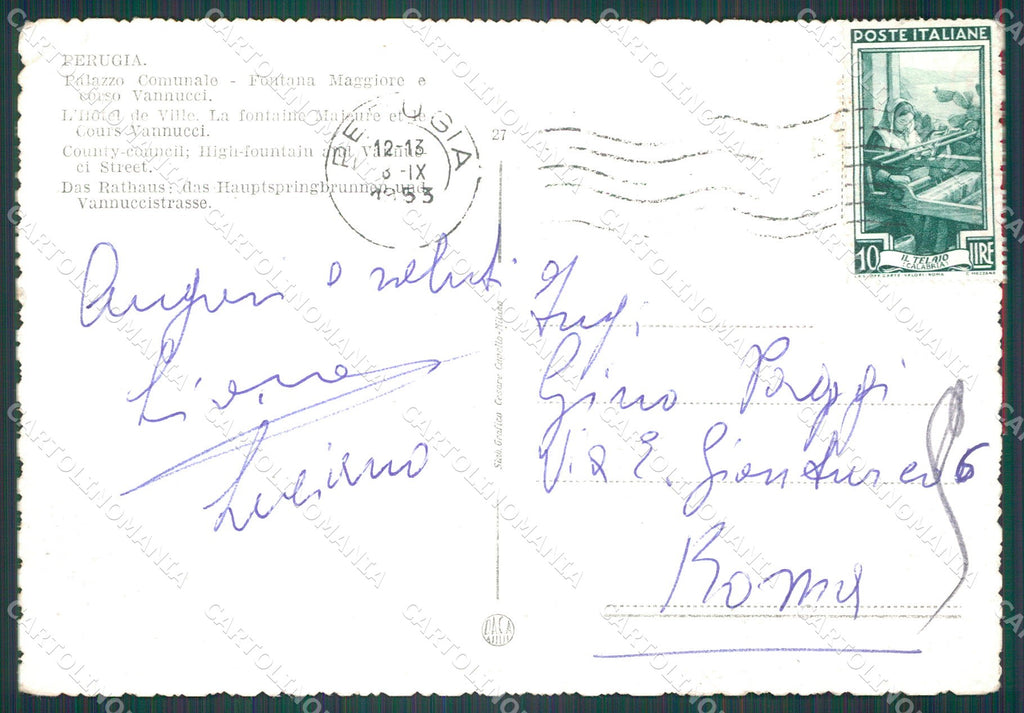 PERUGIA.
Palazzo Comunale - Fontana Maggiore e
corso Vannucci.
L'Hôtel de Ville. La fontaine Majeure et le
Cours Vannucci.
County-council; High-fountain and Vannuc-
ci Street.
Das Rathaus; das Hauptspringbrunnen und
Vannuccistrasse.
27
PERUGIA
12-13
8-IX
1953
POSTE ITALIANE
10 LIRE
IL TELAIO
(CALABRIA)
Auguri e saluti
Luciano
Stab. Grafico Cesare Capello - Milano
Ing.
Gino Poggi
Via E. Gianturco 6
Roma
CARTOLINOMANIA